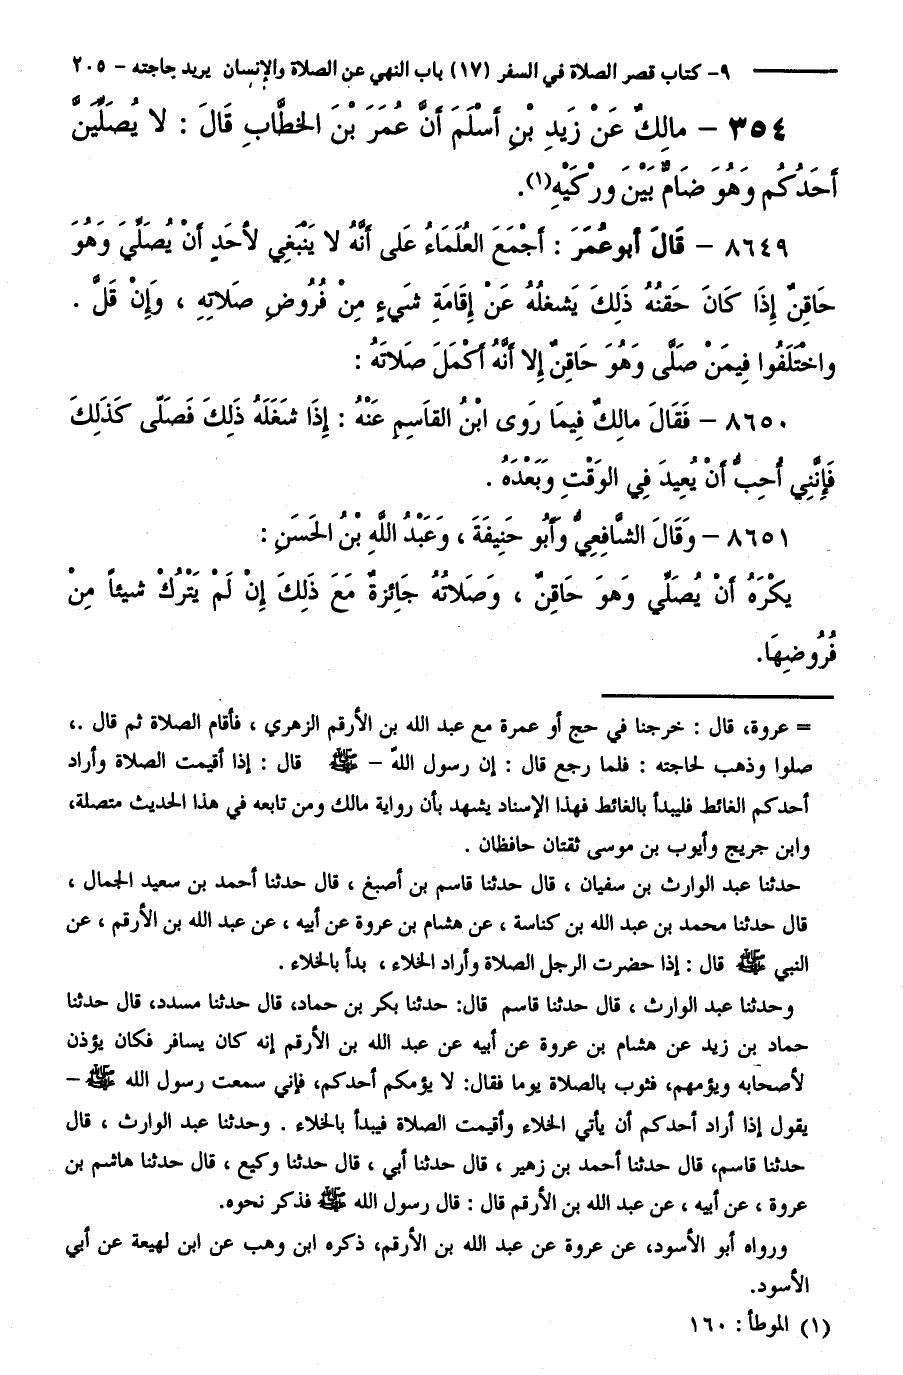 ٩- كتاب قصر الصلاة في السفر (١٧) باب النهي عن الصلاة والإنسان يريد حاجته – ٢٠٥
٣٥٤ – مالِكٌ عَنْ زَيدِ بْنِ أَسْلَمَ أَنَّ عُمَرَ بْنَ الخطَّابِ قَالَ : لا يُصَلِّيَنَّ
أَحَدُكُم وَهُوَ ضَامٌّ بَيْنَ وِرْكَيْهِ(١).
٨٦٤٩ – قَالَ أبو عُمَرَ : أجْمَعَ العُلَمَاءُ عَلى أنَّهُ لا يَنْبَغِي لأحَدٍ أنْ يُصَلِّيَ وَهُوَ
حَاقِنٌ إِذَا كَانَ حَقنُهُ ذَلِكَ يَشغلُهُ عَنْ إِقَامَةِ شَيءٍ مِنْ فُرُوضِ صَلاتِهِ ، وَإِنْ قَلَّ .
واخْتَلَفُوا فِيمَنْ صَلَّى وَهُوَ حَاقِنٌ إلا أنَّهُ أكْمَلَ صَلاتَهُ :
٨٦٥٠ – فَقَالَ مالِكٌ فِيمَا رَوى ابْنُ القَاسِمِ عَنْهُ : إِذَا شغَلَهُ ذَلِكَ فَصَلّى كَذَلِكَ
فَإِنَّنِي أُحِبُّ أنْ يُعِيدَ فِي الوَقْتِ وَبَعْدَهُ .
٨٦٥١ – وَقَالَ الشَّافِعِيُّ وَأَبُو حَنِيفَةَ ، وَعَبْدُ اللَّهِ بْنُ الحَسَنِ :
يكْرَهُ أنْ يُصَلِّي وَهوَ حَاقِنٌ ، وَصَلاتُهُ جَائِزةٌ مَعَ ذَلِكَ إِنْ لَمْ يَتْرُكْ شيئاً مِنْ
فُرُوضِهَا.
= عروة، قال : خرجنا في حج أو عمرة مع عبد الله بن الأرقم الزهري ، فأقام الصلاة ثم قال .،
صلوا وذهب لحاجته : فلما رجع قال : إن رسول اللهّ – ﷺ قال : إذا أقيمت الصلاة وأراد
أحدكم الغائط فليبدأ بالغائط فهذا الإسناد يشهد بأن رواية مالك ومن تابعه في هذا الحديث متصلة،
وابن جريج وأيوب بن موسى ثقتان حافظان .
حدثنا عبد الوارث بن سفيان ، قال حدثنا قاسم بن أصبغ ، قال حدثنا أحمد بن سعيد الجمال ،
قال حدثنا محمد بن عبد الله بن كناسة ، عن هشام بن عروة عن أبيه ، عن عبد الله بن الأرقم ، عن
النبي ﷺ قال : إذا حضرت الرجل الصلاة وأراد الخلاء ، بدأ بالخلاء .
وحدثنا عبد الوارث ، قال حدثنا قاسم قال: حدثنا بكر بن حماد، قال حدثنا مسدد، قال حدثنا
حماد بن زيد عن هشام بن عروة عن أبيه عن عبد الله بن الأرقم إنه كان يسافر فكان يؤذن
لأصحابه ويؤمهم، فثوب بالصلاة يوما فقال: لا يؤمكم أحدكم، فإني سمعت رسول الله ﷺ –
يقول إذا أراد أحدكم أن يأتي الخلاء وأقيمت الصلاة فيبدأ بالخلاء . وحدثنا عبد الوارث ، قال
حدثنا قاسم، قال حدثنا أحمد بن زهير ، قال حدثنا أبي ، قال حدثنا وكيع ، قال حدثنا هاشم بن
عروة ، عن أبيه ، عن عبد الله بن الأرقم قال : قال رسول الله ﷺ فذكر نحوه.
ورواه أبو الأسود، عن عروة عن عبد الله بن الأرقم، ذكره ابن وهب عن ابن لهيعة عن أبي
الأسود.
(١) الموطأ : ١٦٠